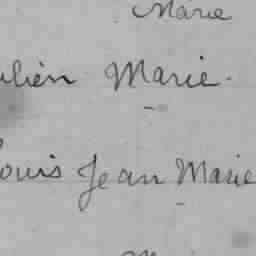 Marie
ulien Marie.
ouis Jean Marie